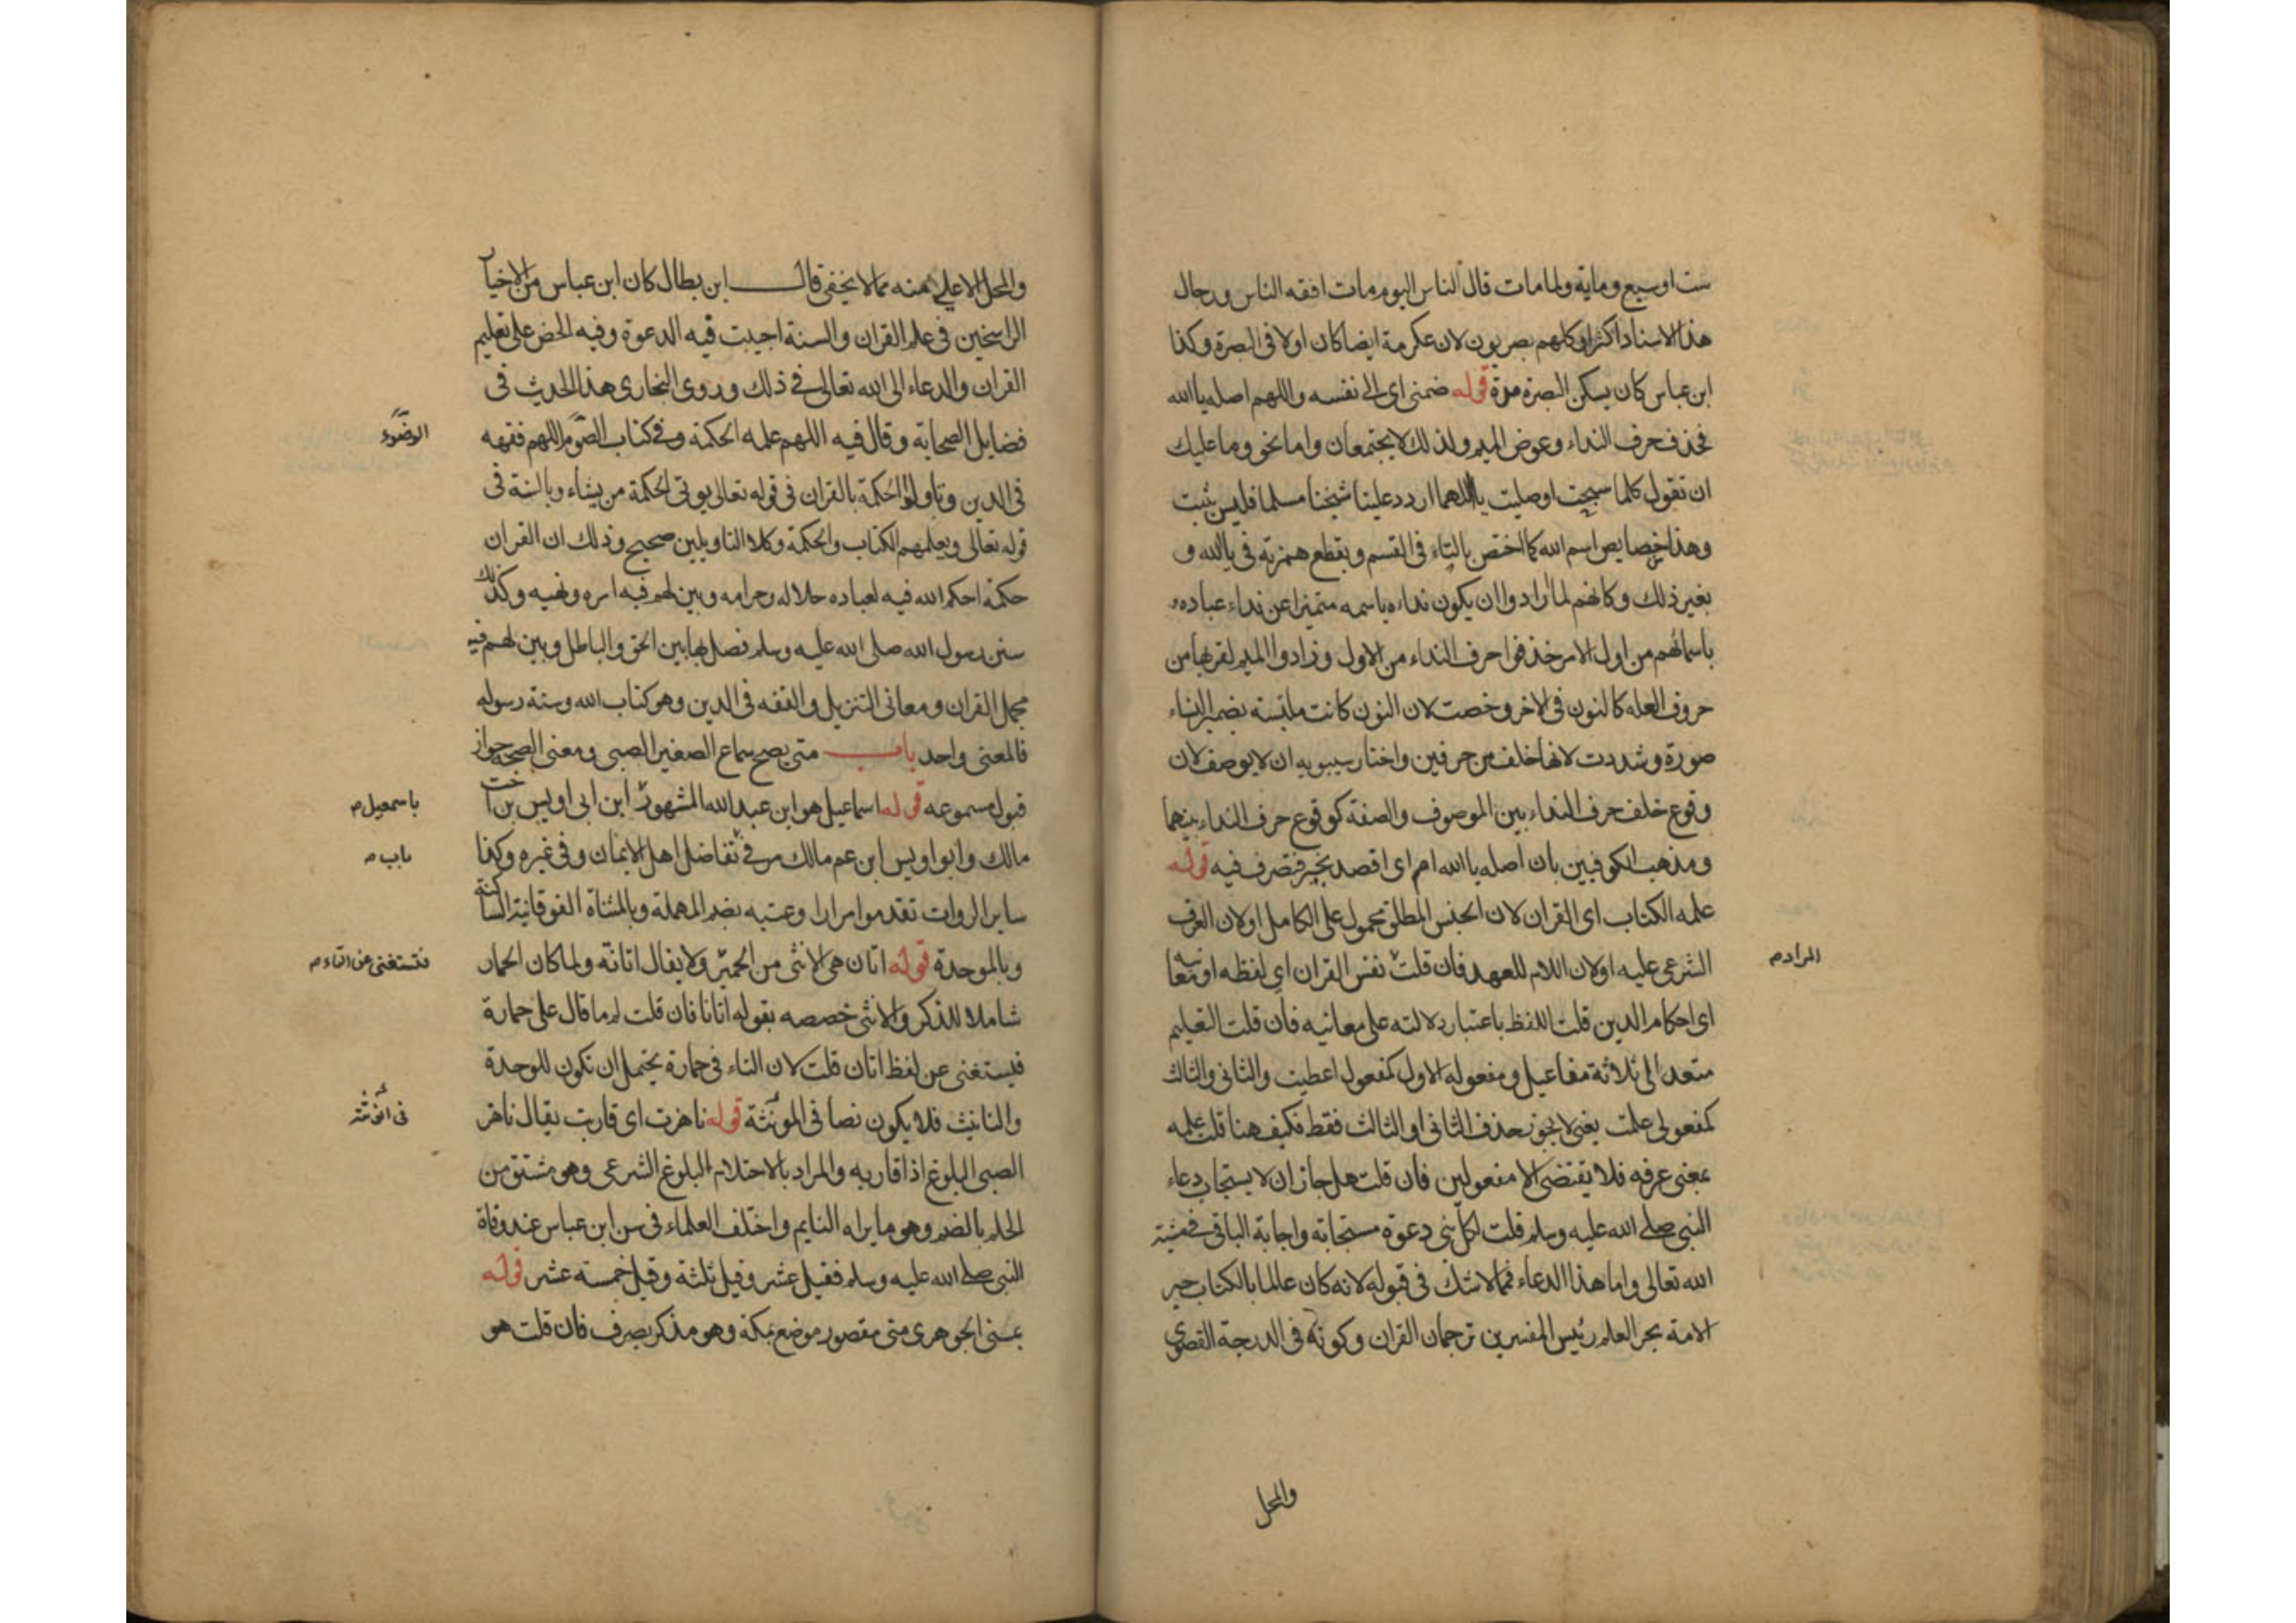 ست او سبع ومايه ولما مات قال الناس اليوم مات افقه الناس ورجال
هذا الاسناد اكثرهم او كلهم بصريون لان عكرمة ايضا كان اولا فى البصرة وكذا
ابن عباس كان يسكن البصرة مدة قوله ضمنى اى الى نفسه واللهم اصله يا الله
فحذف حرف النداء وعوض الميم ولذلك لا يجتمعان واما نحو وما عليك
ان تقول كلما سبحت او صليت يا اللهما اردد علينا شيخنا مسلما فليس يثبت
وهذا خصايص اسم الله كما اختص بالتاء فى القسم وبقطع همزته فى يا الله و
بغير ذلك وكانهم لما ارادوا ان يكون نداءه باسمه متميزا عن نداء عباده
باسمائهم من اول الامر حذفوا حرف النداء من الاول وزادوا الميم لقربها من
حروف العله كالنون فى الاخر وخصت لان النون كانت ملتبسة بضمير النساء
صورة وشددت لانها خلف من حرفين واختار سيبويه ان لا يوصف لان
وقوع خلف حرف النداء بين الموصوف والصفة كوقوع حرف النداء بينهما
ومذهب الكوفيين بان اصله يا الله ام اى اقصد بخير فتصرف فيه قوله
علمه الكتاب اى القران لان الجنس المطلق محمول على الكامل او لان العرف
الشرعى عليه او لان اللام للعهد فان قلت نفس القران اى لفظه او معانيه
المراد م
اى احكام الدين قلت اللفظ باعتبار دلالته على معانيه فان قلت التعليم
متعد الى ثلاثة مفاعيل ومفعوله الاول كمفعول اعطيت والثانى والثالث
كمفعولى علمت يعنى لا يجوز حذف الثانى او الثالث فقط فكيف هنا قلت علمه
بمعنى عرفه فلا يقتضى الا مفعولين فان قلت هل جاز ان لا يستجاب دعاء
النبى صلى الله عليه وسلم قلت لكل نبى دعوة مستجابة واجابة الباقى فى مشية
الله تعالى واما هذا الدعاء فمما لا شك فى قبوله لانه كان عالما بالكتاب حبر
الامة بحر العلم رئيس المفسرين ترجمان القران وكونه فى الدرجة القصوى
والمحل
والمحل الاعلى منه مما لا يخفى قال ابن بطال كان ابن عباس من الاخيار
الراسخين فى علم القران والسنة اجيبت فيه الدعوة وفيه الحض على تعليم
القران والدعاء الى الله تعالى فى ذلك وروى البخارى هذا الحديث فى
فضايل الصحابة وقال فيه اللهم علمه الحكمة وفى كتاب الصوم اللهم فقهه
الوضوء
فى الدين وتاولوا الحكمة بالقران فى قوله تعالى يوتى الحكمة من يشاء وبالسنة فى
قوله تعالى ويعلمهم الكتاب والحكمة وكلا التاويلين صحيح وذلك ان القران
حكمة احكم الله فيه لعباده حلاله وحرامه وبين لهم فيه امره ونهيه وكذلك
سنن رسول الله صلى الله عليه وسلم فصل بها بين الحق والباطل وبين لهم فيه
مجمل القران ومعانى التنزيل والفقه فى الدين وهو كتاب الله وسنة رسوله
فالمعنى واحد باب متى يصح سماع الصغير الصبى ومعنى الصحة جواز
قبول مسموعه قوله اسماعيل هو ابن عبد الله المشهور ابن ابى اويس بن اخت
باسمعيل م
مالك وابو اويس ابن عم مالك مر فى تفاضل اهل الايمان وفى غيره وكذا
باب م
ساير الروات تقدموا مرارا وعتبه بضم المهملة وبالمثناة الفوقانية الساكنة
وبالموحدة قوله اتان هى الانثى من الحمير ولا يقال اتانة ولما كان الحمار
فتستغنى عن التاء م
شاملا للذكر والانثى خصصه بقوله اتانا فان قلت لم ما قال على حمارة
فيستغنى عن لفظ اتان قلت لان التاء فى حمارة يحتمل ان تكون للوحدة
والتانيث فلا يكون نصا فى المونثة قوله ناهزت اى قاربت يقال ناهز
فى انوثته
الصبى البلوغ اذا قاربه والمراد بالاحتلام البلوغ الشرعى وهو مشتق من
الحلم بالضم وهو ما يراه النايم واختلف العلماء فى سن ابن عباس عند وفاة
النبى صلى الله عليه وسلم فقيل عشر وقيل ثلثة وقيل خمسة عشر قوله
بمنى الجوهرى منى مقصور موضع بمكة وهو مذكر يصرف فان قلت هو